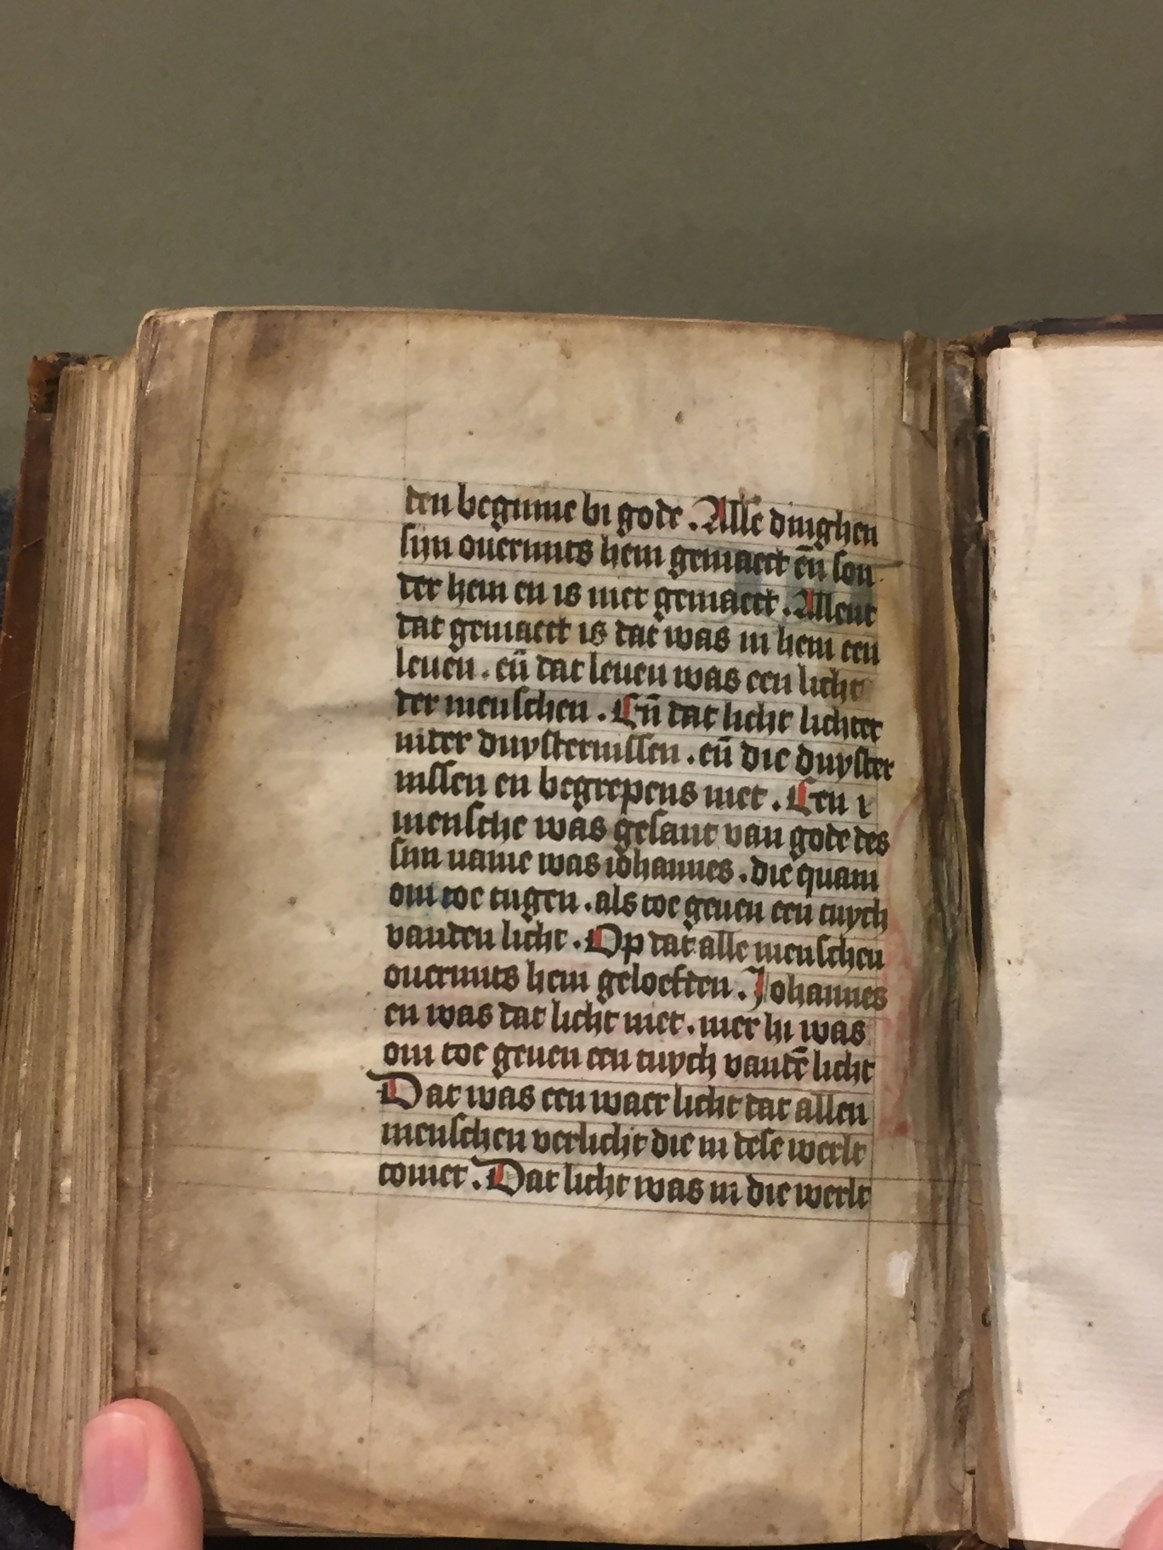 den beginne bi gode. Alle dinghen
sijn ouermits hem gemaect eñ son
der hem en is niet gemaect. Allent
dat gemaect is dat was in hem een
leuen. eñ dat leuen was een licht
der menschen. Eñ dat licht lichtet
inder duysternissen. eñ die duyster
nissen en begrepens niet. Een
mensche was gesant van gode des
sijn name was iohannes. die quam
om toe tugen. als toe geuen een tuych
vanden licht. Op dat alle menschen
ouermits hem geloefden. Johannes
en was dat licht niet. mer hi was
om toe geuen een tuych vandē licht
Dat was een waer licht dat allen
menschen verlicht die in dese werlt
comet. Dat licht was in die werlt